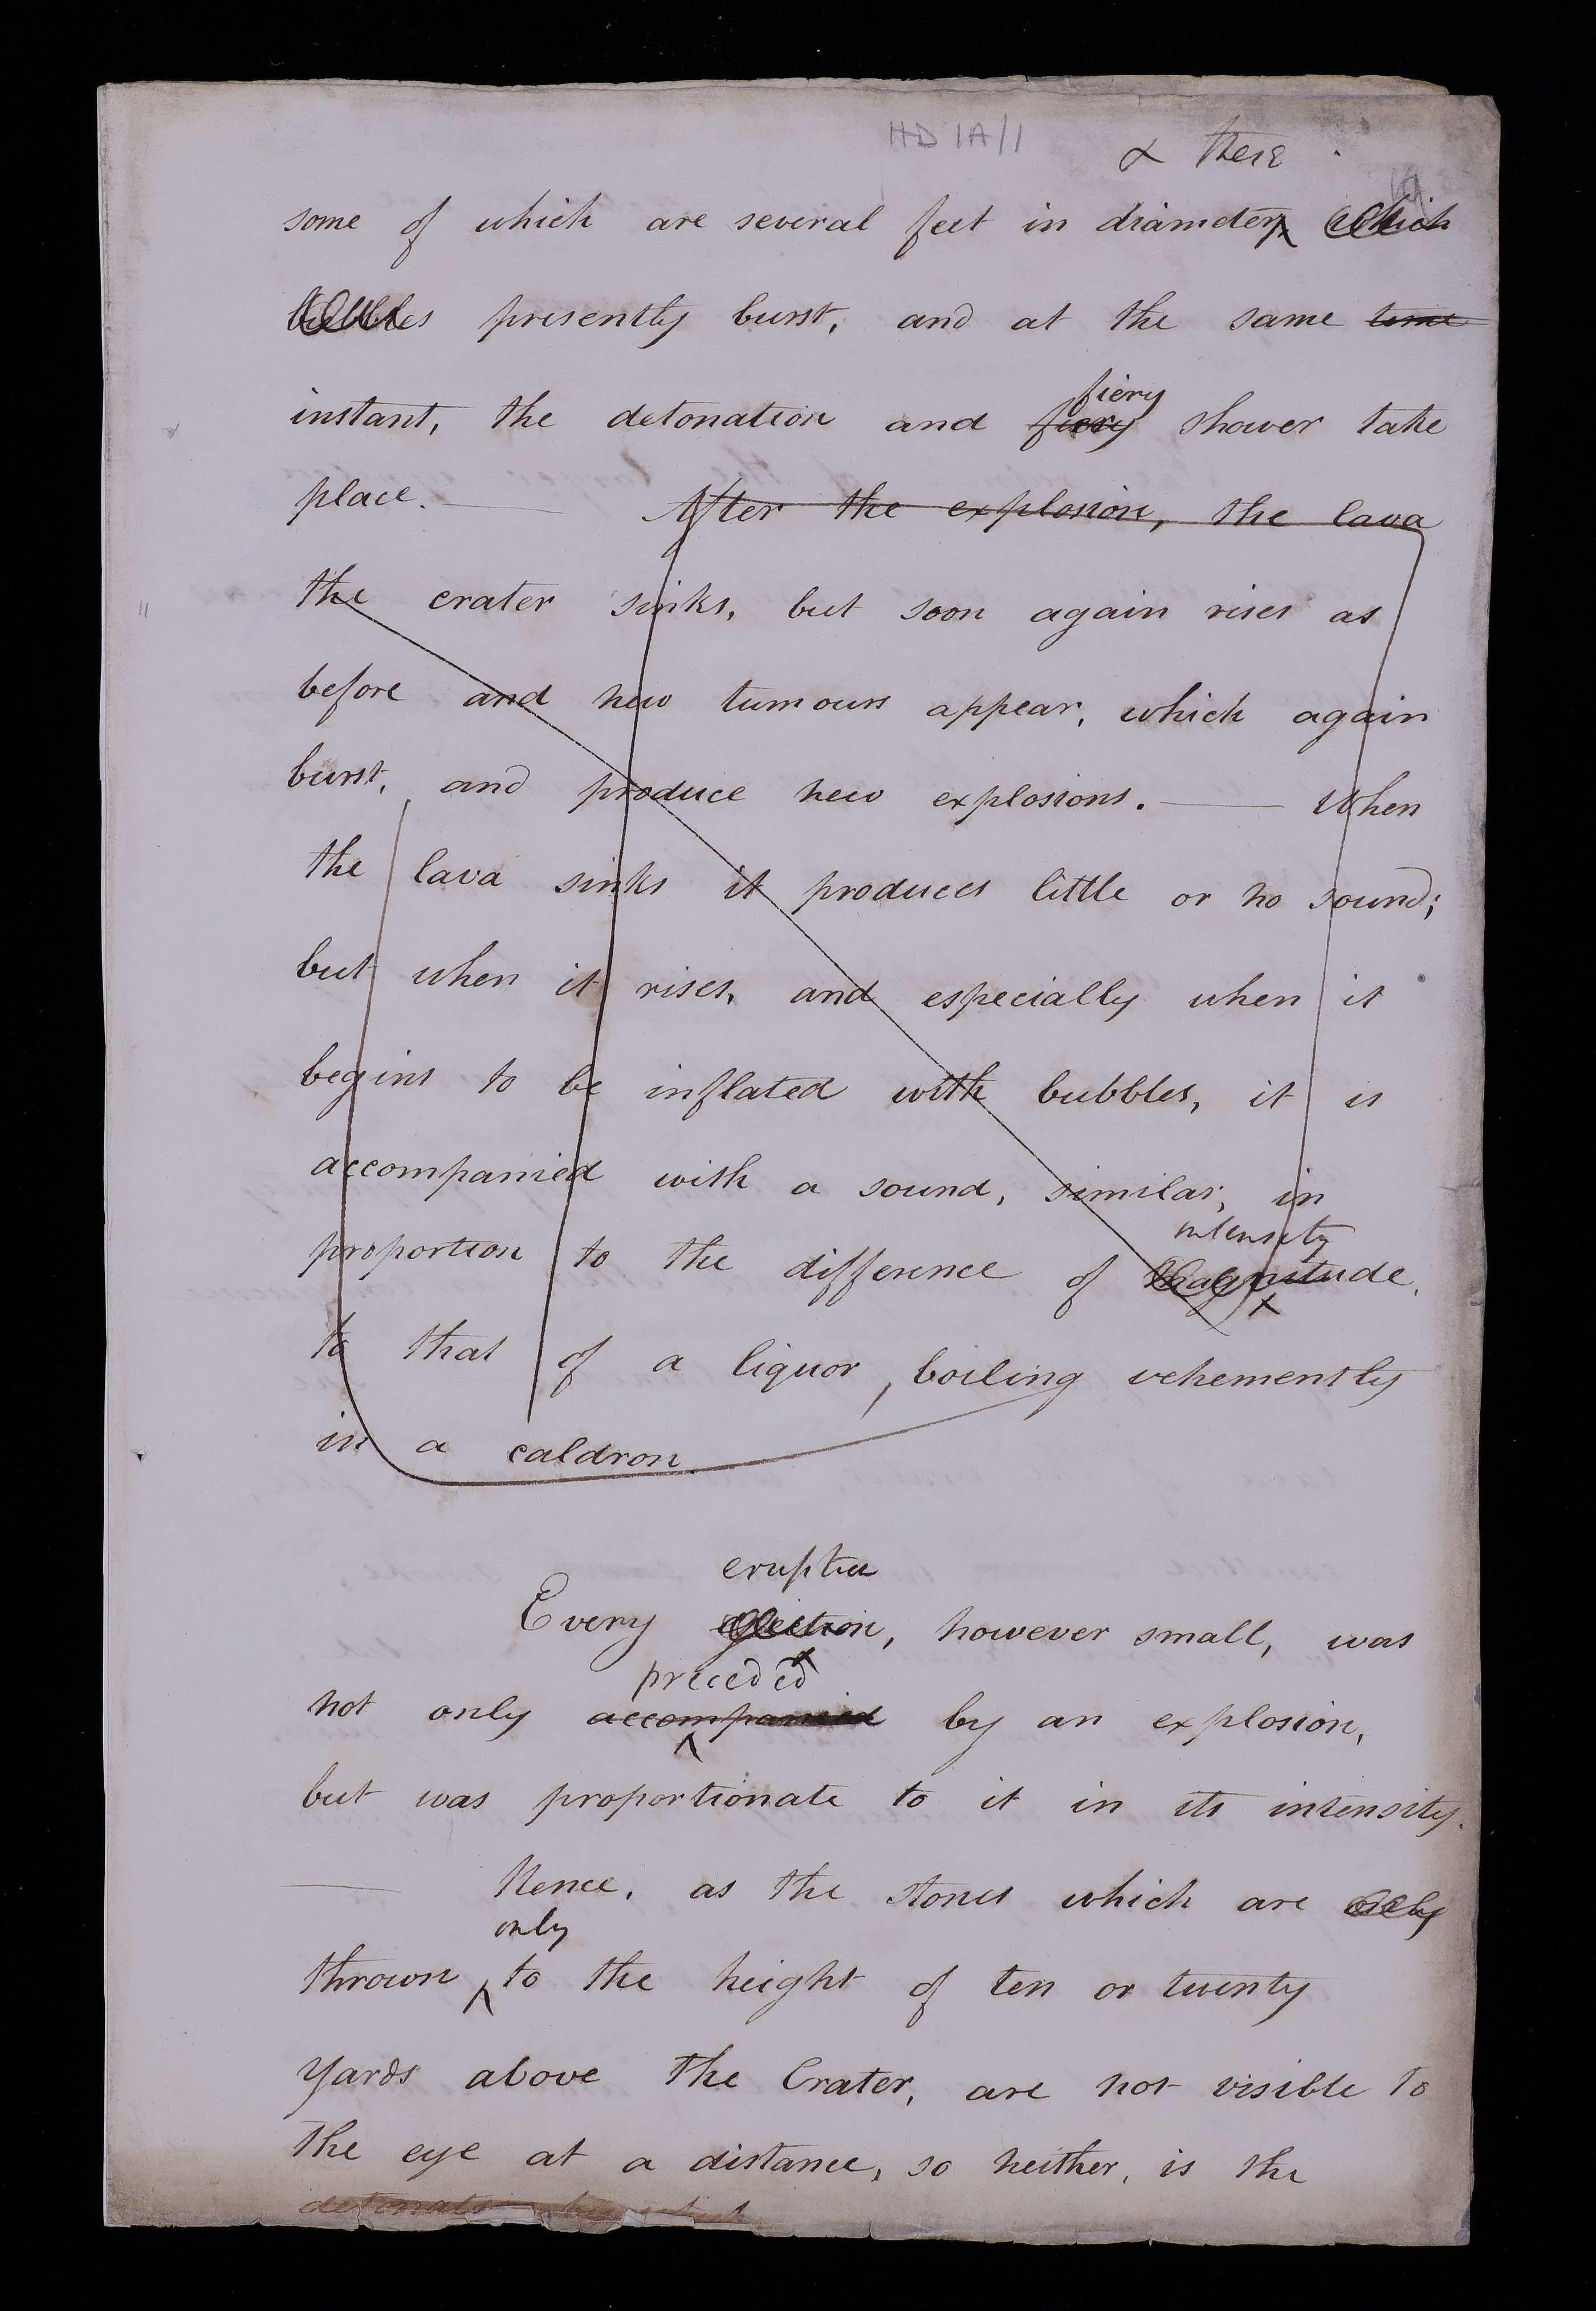 HD 1A/1
& these
some of which are several feet in diameter which
bubbles presently burst, and at the same time
fiery
instant, the detonation and fiery shower take
place. — After the explosion, the lava
the crater sinks, but soon again rises as
before and new tumours appear, which again
burst, and produce new explosions. — When
the lava sinks it produces little or no sound;
but when it rises, and especially when it
begins to be inflated with bubbles, it is
accompanied with a sound, similar, in
intensity
proportion to the difference of magnitude,
to that of a liquor, boiling vehemently
in a caldron.
eruption
Every ejection, however small, was
preceded
not only accompanied by an explosion,
but was proportionate to it in its intensity.
— Hence, as the stones which are only
only
thrown to the height of ten or twenty
yards above the Crater, are not visible to
the eye at a distance, so neither, is the